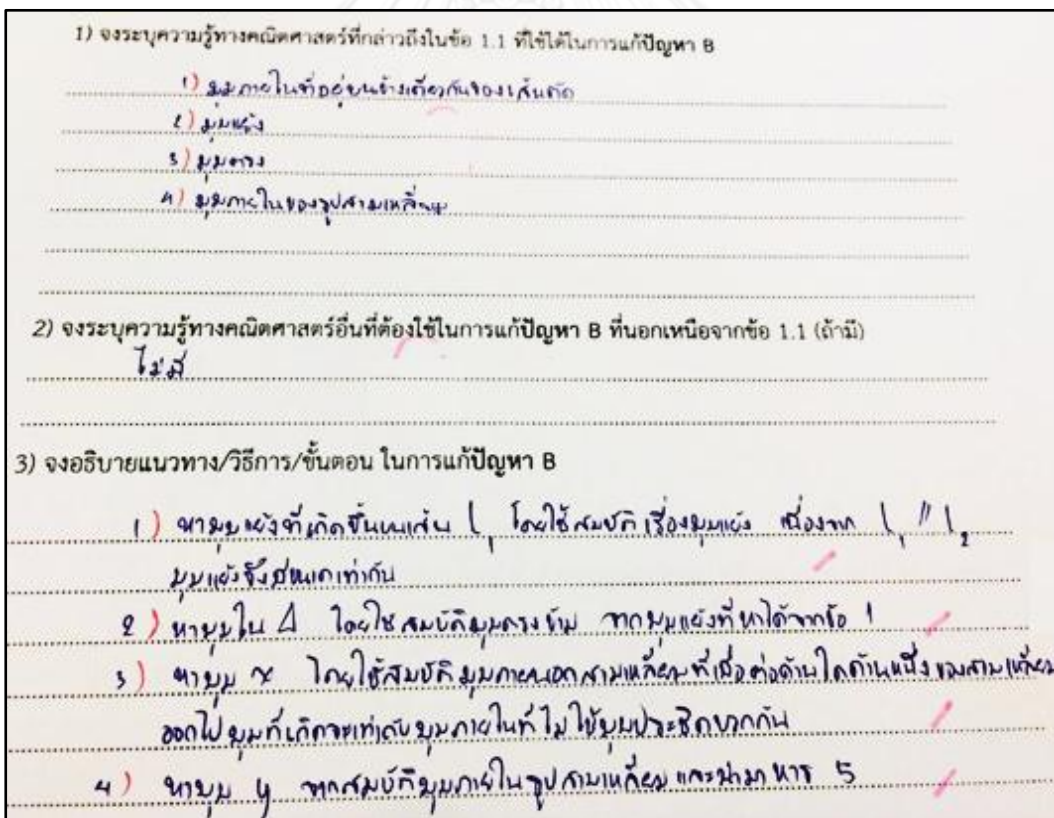 1) จงระบุความรู้ทางคณิตศาสตร์ที่กล่าวถึงในข้อ 1.1 ที่ใช้ได้ในการแก้ปัญหา B
1) มุมภายในที่อยู่บนข้างเดียวกันของเส้นตัด
2) มุมแย้ง
3) มุมตรง
4) มุมภายในของรูปสามเหลี่ยม
2) จงระบุความรู้ทางคณิตศาสตร์อื่นที่ต้องใช้ในการแก้ปัญหา B ที่นอกเหนือจากข้อ 1.1 (ถ้ามี)
ไม่มี
3) จงอธิบายแนวทาง/วิธีการ/ขั้นตอน ในการแก้ปัญหา B
1) หามุมแย้งที่เกิดขึ้นบนเส้น l₁ โดยใช้สมบัติเรื่องมุมแย้ง เนื่องจาก l₁ // l₂
มุมแย้งจึงมีขนาดเท่ากัน
2) หามุมใน Δ โดยใช้สมบัติมุมตรงข้าม จากมุมแย้งที่หาได้จากข้อ 1
3) หามุม x โดยใช้สมบัติมุมภายนอกสามเหลี่ยมที่เมื่อต่อด้านใดด้านหนึ่งของสามเหลี่ยม
ออกไป มุมที่เกิดจะเท่ากับมุมภายในที่ไม่ใช่มุมประชิดบวกกัน
4) หามุม y จากสมบัติมุมภายในรูปสามเหลี่ยม และนำมา หาร 5